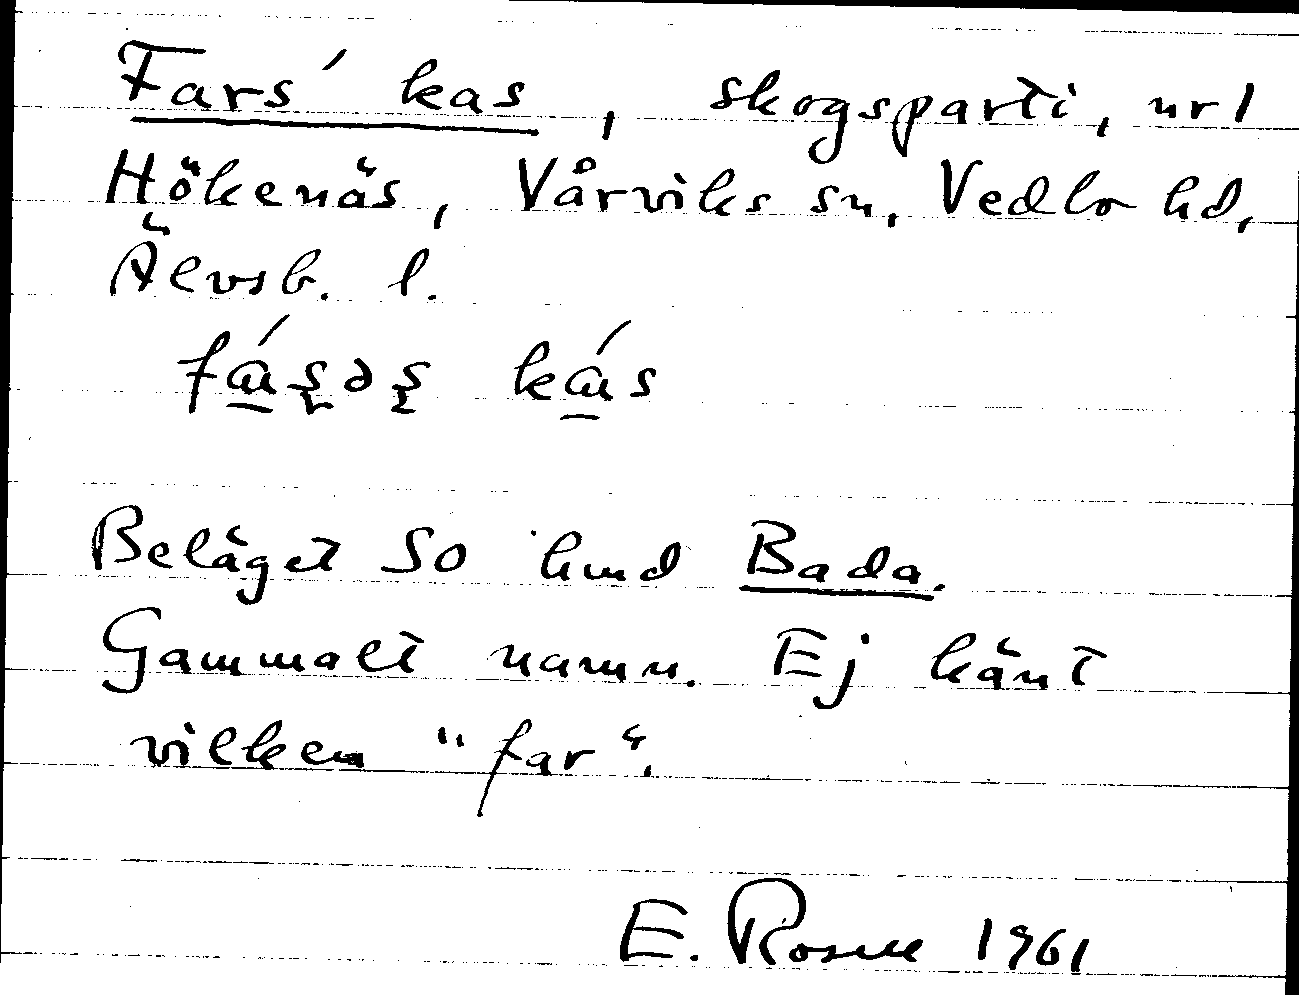 Fars' kas, skogsparti, nr 1
Hökenäs, Vårviks sn, Vedbo hd,
Älvsb. l.
Beläget SO kmd Bada.
Gammalt namn. Ej känt
vilken "far".
E. Rosell 1961